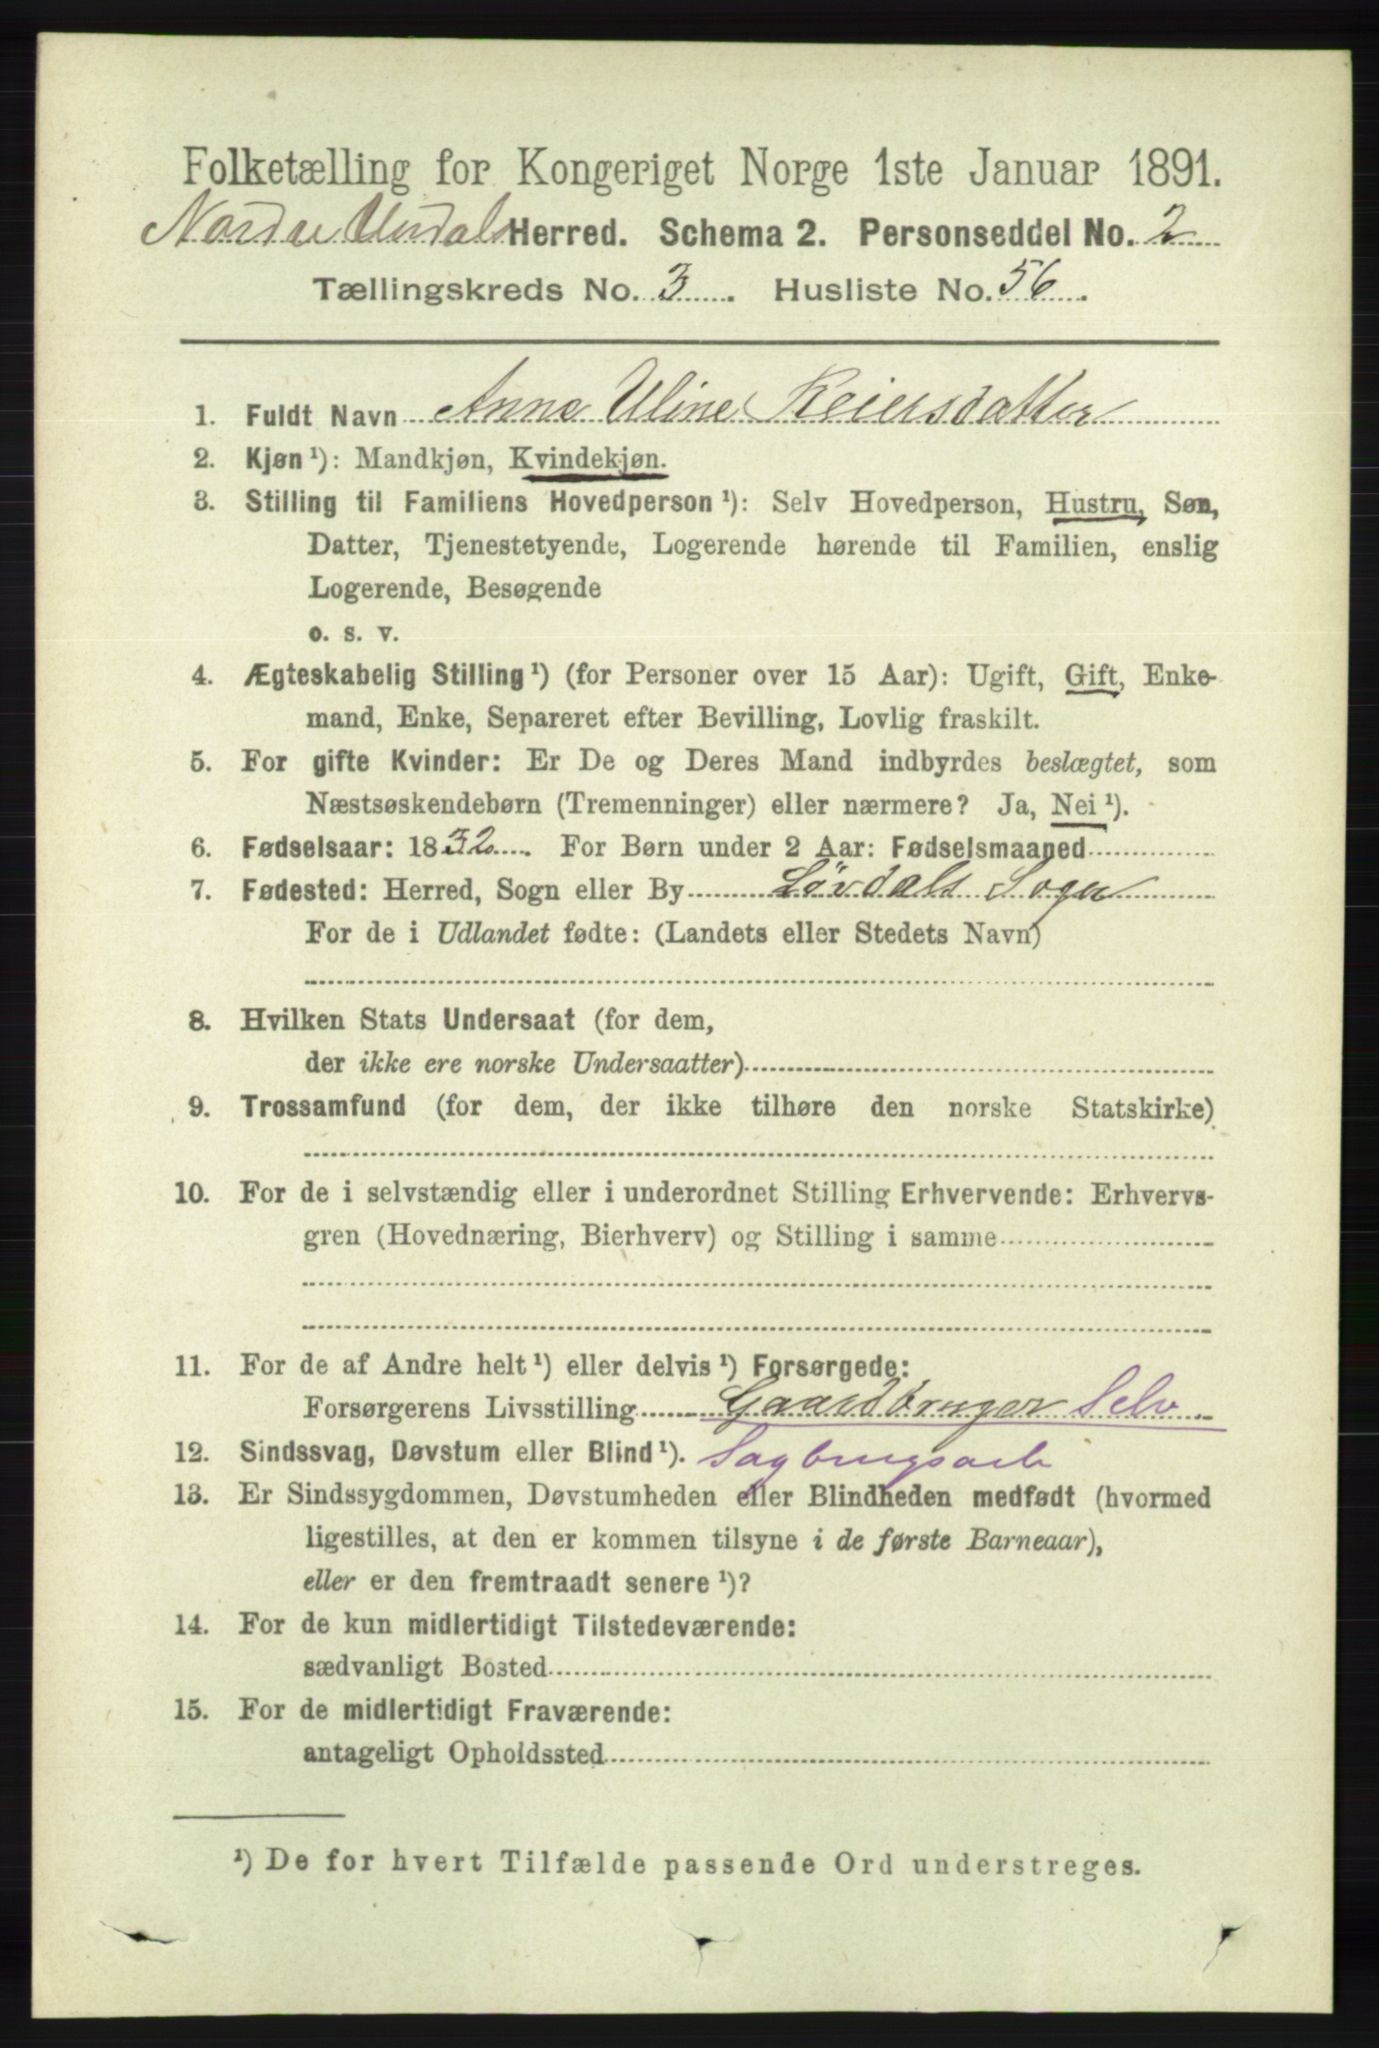 Folketælling for Kongeriget Norge 1ste Januar 1891.
Nordre Undals Herred. Schema 2. Personseddel No. 2
Tællingskreds No. 3. Husliste No. 56.
1. Fuldt Navn Anne Uline Reiersdatter
2. Kjøn ¹): Mandkjøn, Kvindekjøn.
3. Stilling til Familiens Hovedperson ¹): Selv Hovedperson, Hustru, Søn,
Datter, Tjenestetyende, Logerende hørende til Familien, enslig
Logerende, Besøgende
o. s. v.
4. Ægteskabelig Stilling ¹) (for Personer over 15 Aar): Ugift, Gift, Enke-
mand, Enke, Separeret efter Bevilling, Lovlig fraskilt.
5. For gifte Kvinder: Er De og Deres Mand indbyrdes beslægtet, som
Næstsøskendebørn (Tremenninger) eller nærmere? Ja, Nei ¹).
6. Fødselsaar: 1832. For Børn under 2 Aar: Fødselsmaaned
7. Fødested: Herred, Sogn eller By Løvdals Sogn
For de i Udlandet fødte: (Landets eller Stedets Navn)
8. Hvilken Stats Undersaat (for dem,
der ikke ere norske Undersaatter)
9. Trossamfund (for dem, der ikke tilhøre den norske Statskirke)
10. For de i selvstændig eller i underordnet Stilling Erhvervende: Erhvervs-
gren (Hovednæring, Bierhverv) og Stilling i samme
11. For de af Andre helt ¹) eller delvis ¹) Forsørgede:
Forsørgerens Livsstilling Gaardbruger Selv
12. Sindssvag, Døvstum eller Blind ¹). Sagbrugsarb
13. Er Sindssygdommen, Døvstumheden eller Blindheden medfødt (hvormed
ligestilles, at den er kommen tilsyne i de første Barneaar),
eller er den fremtraadt senere ¹)?
14. For de kun midlertidigt Tilstedeværende:
sædvanligt Bosted
15. For de midlertidigt Fraværende:
antageligt Opholdssted
¹) De for hvert Tilfælde passende Ord understreges.